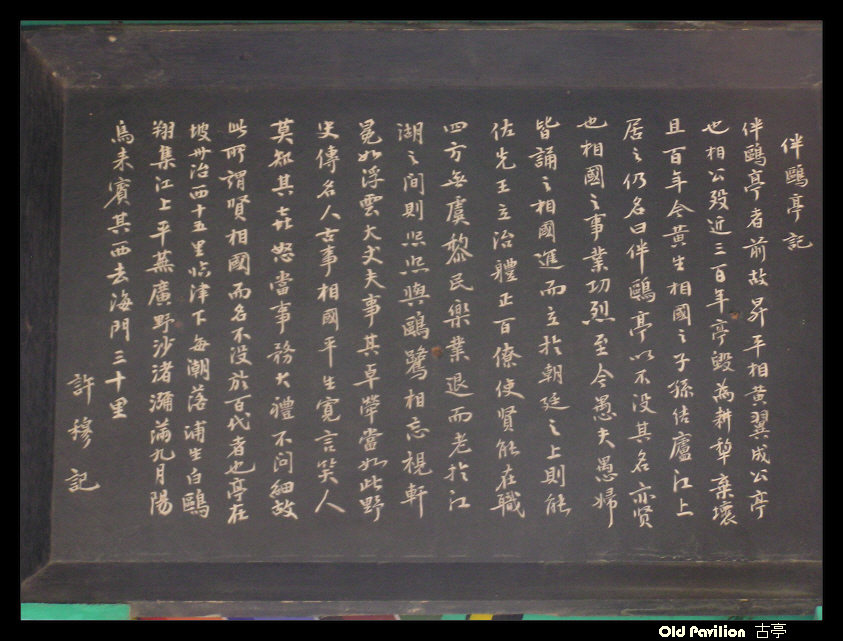 伴鷗亭記
伴鷗亭者前故昇平相黃翼成公亭
也相公歿近三百年亭毀爲耕犂棄壤
且百年今黃生相國之子孫佶廬江上
居之仍名曰伴鷗亭以不沒其名亦賢
也相國之事業功烈至今愚夫愚婦
皆誦之相國進而立於朝廷之上則能
佐先王立治軆正百僚使賢能在職
四方無虞黎民樂業退而老於江
湖之間則煕煕與鷗鷺相忘視軒
冕如浮雲大丈夫事其卓犖當如此野
史傳名人古事相國平生寬言笑人
莫知其喜怒當事務大禮不问細故
此所謂賢相國而名不沒於百代者也亭在
坡州治西十五里臨津下每潮落浦生白鷗
翔集江上平蕪廣野沙渚瀰滿九月陽
鳥來賓其西去海門三十里
許穆記
Old Pavilion 古亭